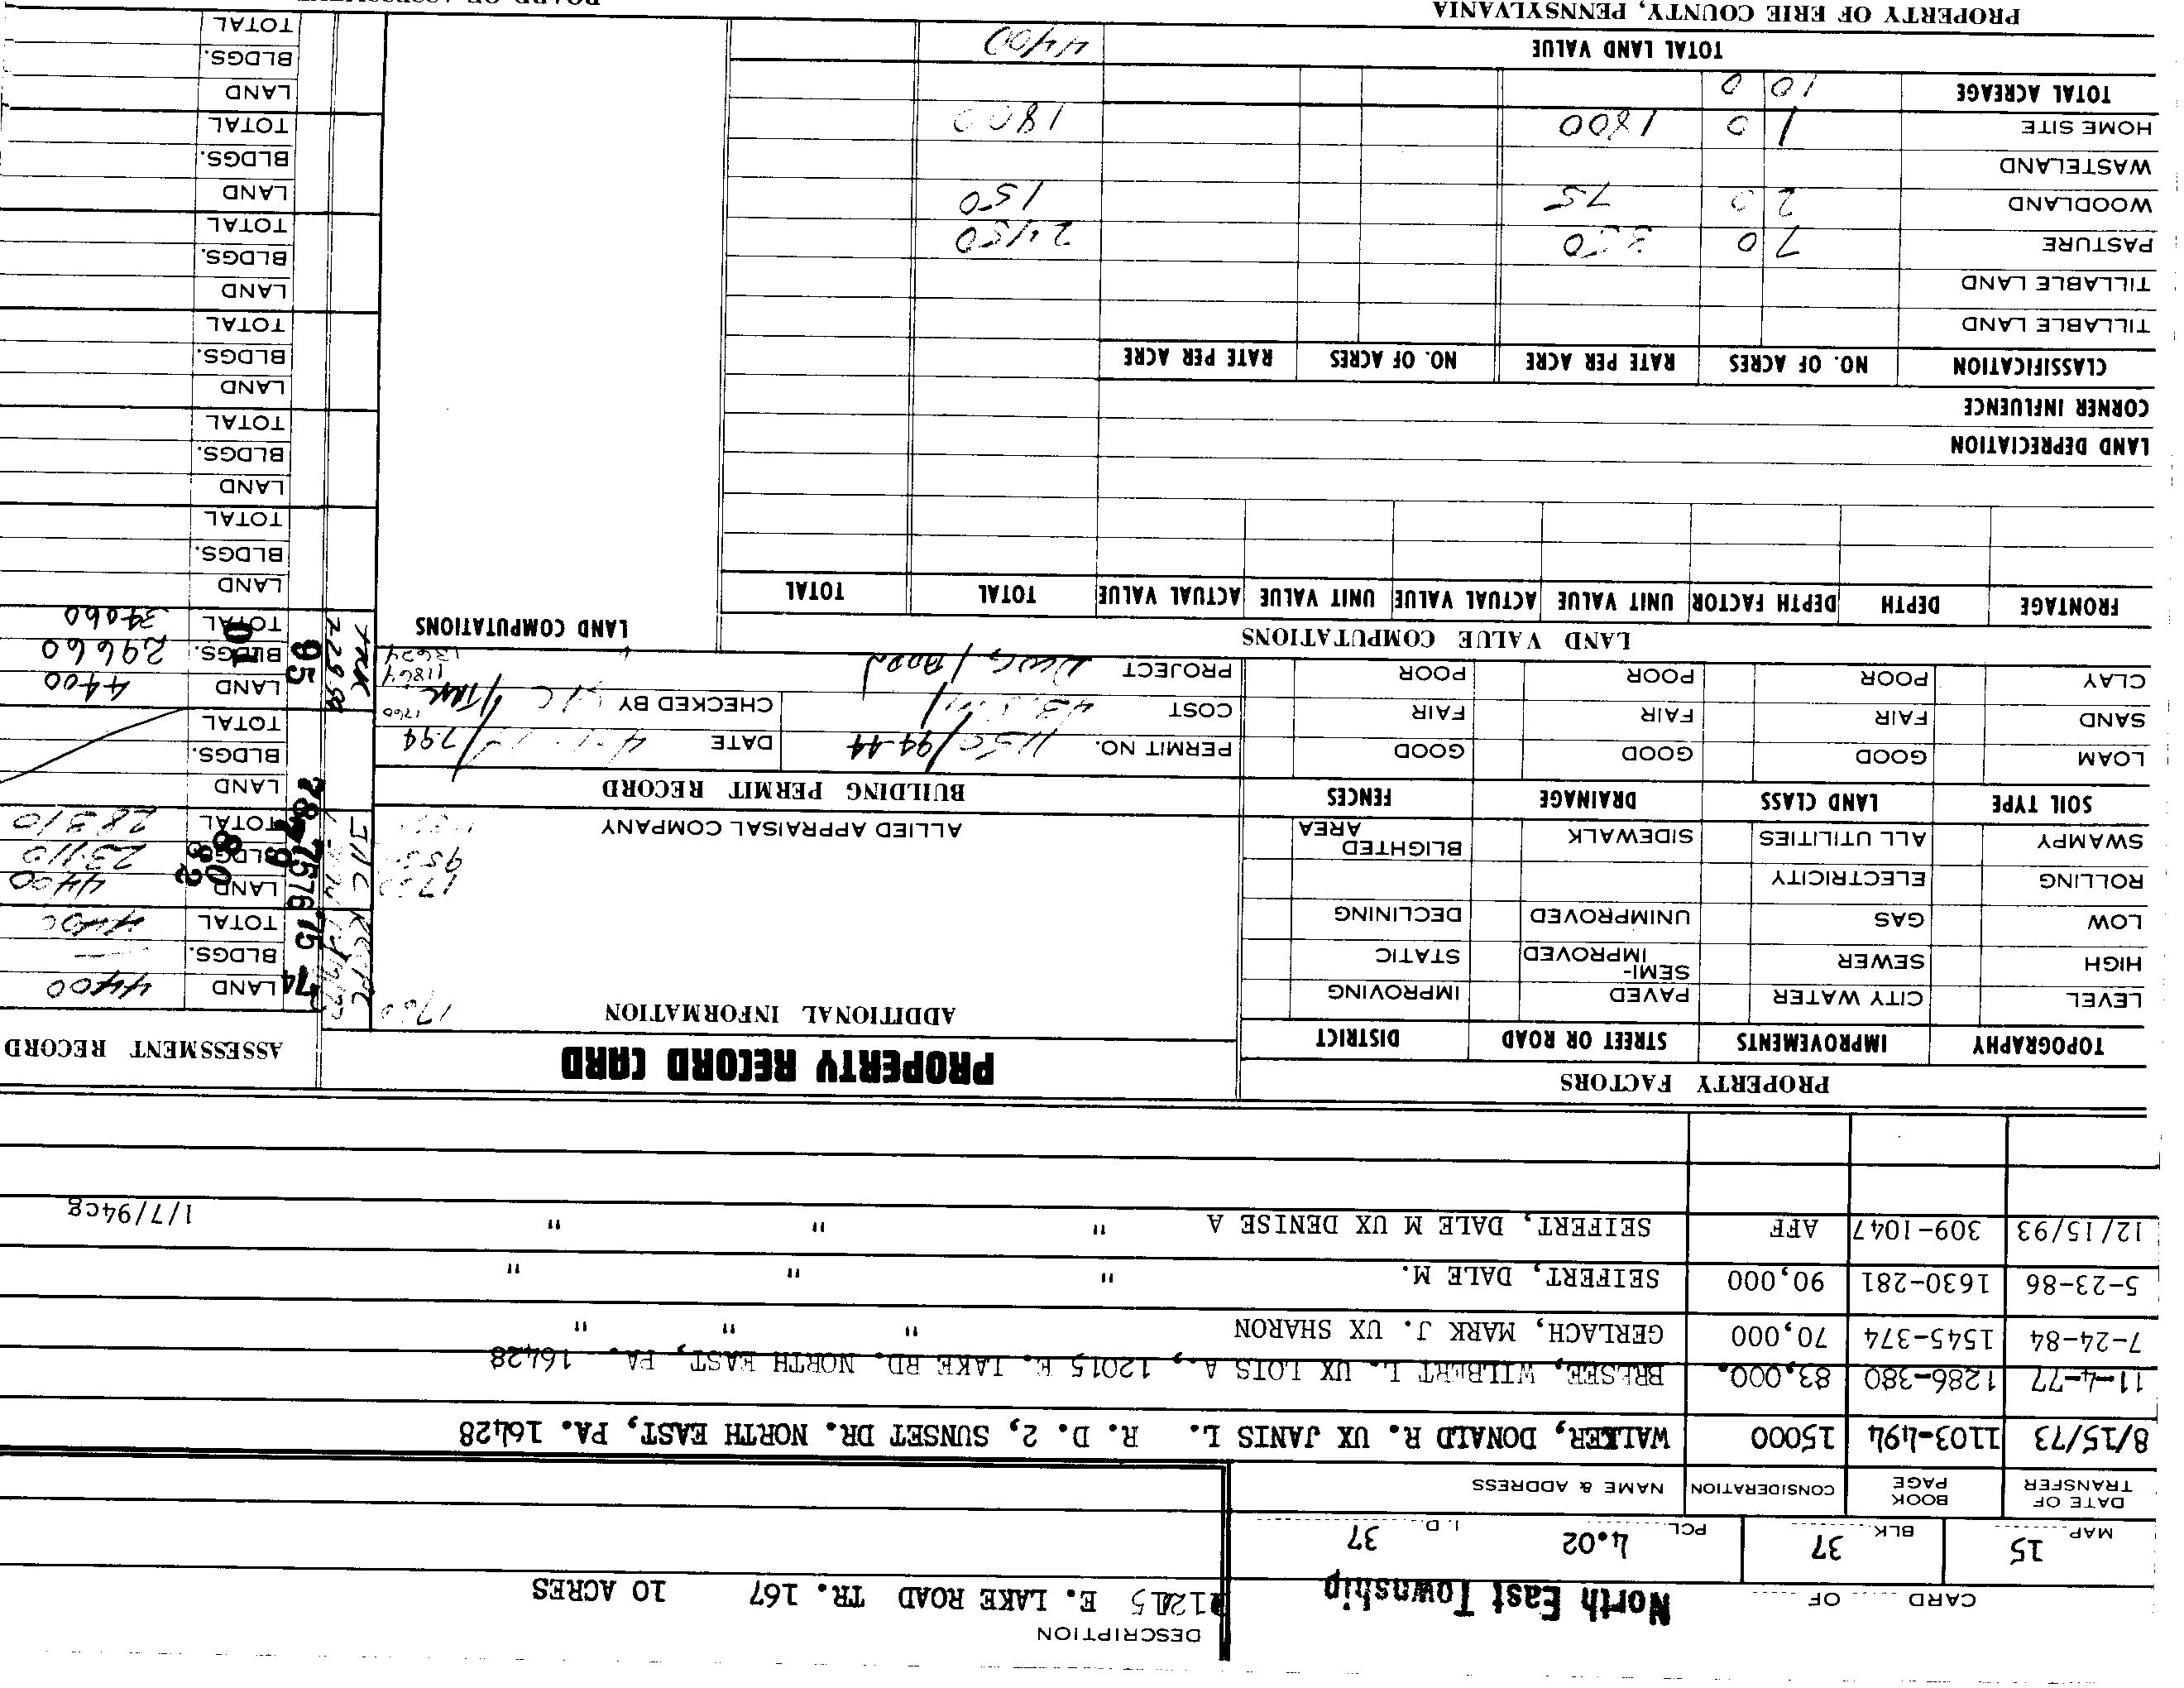 DESCRIPTION
CARD OF North East Township E. LAKE ROAD TR. 167 10 ACRES
MAP 15 BLK. 37 PCL. 4.02 I. D. 37
DATE OF TRANSFER BOOK PAGE CONSIDERATION NAME & ADDRESS
8/15/73 1103-494 15000 WALKER, DONALD R. UX JANIS L. R. D. 2, SUNSET DR. NORTH EAST, PA. 16428
11-4-77 1286-380 83,000. BRESEE, WILBERT L. UX LOIS A., 12015 E. LAKE RD. NORTH EAST, PA. 16428
7-24-84 1545-374 70,000 GERLACH, MARK J. UX SHARON " " "
5-23-86 1630-281 90,000 SEIFERT, DALE M. " " "
12/15/93 309-1047 AFF SEIFERT, DALE M UX DENISE A " " " 1/7/94cg
PROPERTY FACTORS
PROPERTY RECORD CARD
ASSESSMENT RECORD
TOPOGRAPHY IMPROVEMENTS STREET OR ROAD DISTRICT
LEVEL CITY WATER PAVED IMPROVING
HIGH SEWER SEMI-IMPROVED STATIC
LOW GAS UNIMPROVED DECLINING
ROLLING ELECTRICITY
SWAMPY ALL UTILITIES SIDEWALK BLIGHTED AREA
SOIL TYPE LAND CLASS DRAINAGE FENCES
LOAM GOOD GOOD GOOD
SAND FAIR FAIR FAIR
CLAY POOR POOR POOR
ADDITIONAL INFORMATION
1760
ALLIED APPRAISAL COMPANY
BUILDING PERMIT RECORD
PERMIT NO. 94-44 DATE 7-94
COST CHECKED BY
PROJECT
74 LAND 4400
75 BLDGS. —
TOTAL 4400
LAND 4400
BLDGS. 23910
TOTAL 28310
LAND
BLDGS.
TOTAL
95 LAND 4400
BLDGS. 29660
01 TOTAL 34060
LAND
BLDGS.
TOTAL
LAND
BLDGS.
TOTAL
LAND
BLDGS.
TOTAL
LAND
BLDGS.
TOTAL
LAND
BLDGS.
TOTAL
LAND
BLDGS.
TOTAL
LAND VALUE COMPUTATIONS
LAND COMPUTATIONS
FRONTAGE DEPTH DEPTH FACTOR UNIT VALUE ACTUAL VALUE UNIT VALUE ACTUAL VALUE TOTAL TOTAL
LAND DEPRECIATION
CORNER INFLUENCE
CLASSIFICATION NO. OF ACRES RATE PER ACRE NO. OF ACRES RATE PER ACRE
TILLABLE LAND
TILLABLE LAND
PASTURE 7 0 350 2450
WOODLAND 2 0 75 150
WASTELAND
HOME SITE 1 0 1800 1800
TOTAL ACREAGE 10 0
TOTAL LAND VALUE 4400
PROPERTY OF ERIE COUNTY, PENNSYLVANIA